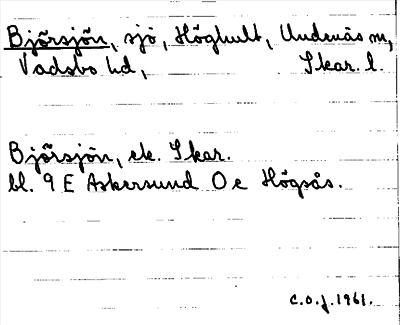 Björsjön, sjö, Höghult, Undenäs sn,
Vadsbo hd, Skar. l.
Björsjön, ek. Skar.
bl. 9 E Askersund O e Högsås.
C.O.J. 1961.